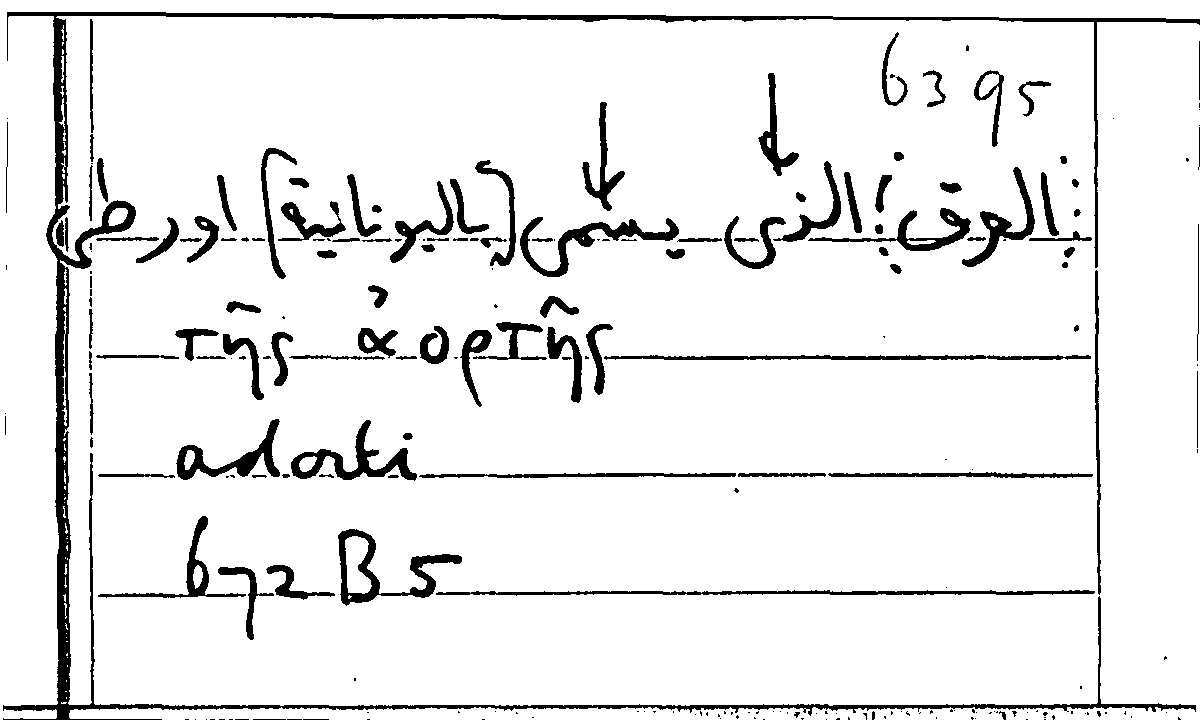 63 95
⁝العرق⁝ الذى يسمى [باليونانية] اورطى
τῆς ἀορτῆς
adorti
672 B 5